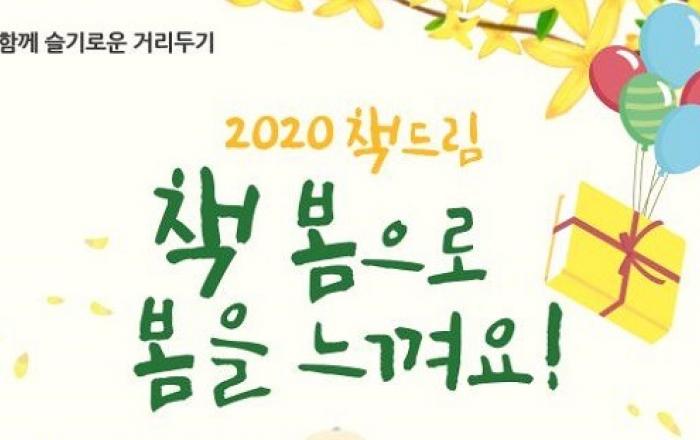 함께 슬기로운 거리두기
2020 책드림
책 봄으로
봄을 느껴요!